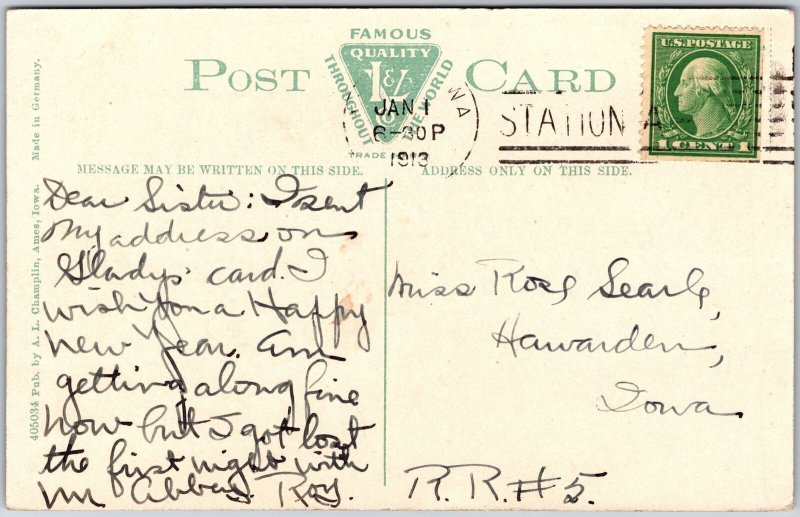 FAMOUS
QUALITY
THROUGHOUT THE WORLD
TRADE
POST CARD
JAN 1
6-30P
1913
WA
STATION A
U.S. POSTAGE
1 CENT 1
MESSAGE MAY BE WRITTEN ON THIS SIDE.
ADDRESS ONLY ON THIS SIDE.
405034 Pub. by A. L. Champlin, Ames, Iowa. Made in Germany.
Dear Sister: I sent
my address on
Gladys' card. I
wish you a Happy
New Year. Am
getting along fine
now but I got lost
the first night with
Mr Abbey. Roy.
Miss Rose Searle,
Hawarden,
Iowa
R.R.#5.